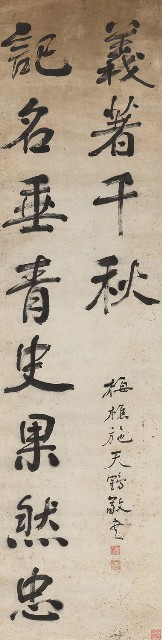 記名垂青史果然忠
義著千秋
梅樵施天鶴敬書